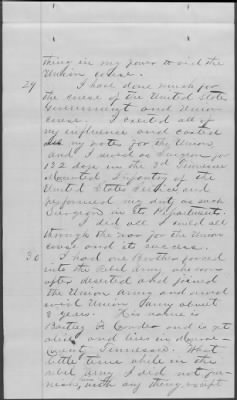 thing in my power to aid the
Union cause.
29 I had done much for
the cause of the United States
Government and Union
cause. I exerted all of
my influence and casted
my votes for the Union,
and I served as Surgeon for
22 days in the 3d Tennessee
Mounted Infantry of the
United States Service and
performed my duty as such
Surgeon in its Department.
I did all I could all
through the war for the Union
cause and its success.
30 I had one Brother forced
into the Rebel Army who soon
after deserted and joined
the Union Army and served
said Union Army about
2 years. His name is
and is yet
alive and lives in
County Tennessee. What
little time while in the
rebel army I did not
him with any thing except